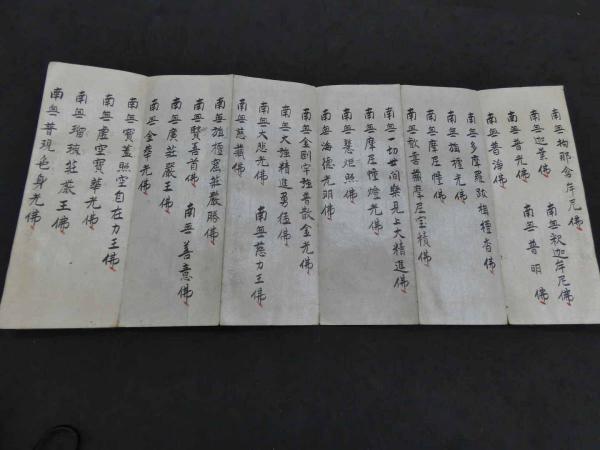 南無拘那含牟尼佛
南無迦葉佛 南無釋迦牟尼佛
南無普光佛 南無普明佛
南無普淨佛
南無多摩羅跋栴檀香佛
南無旃檀光佛
南無摩尼幢佛
南無歡喜藏摩尼宝積佛
南無一切世間樂見上大精進佛
南無摩尼幢燈光佛
南無慧炬照佛
南無海德光明佛
南無金剛牢強普散金光佛
南無大強精進勇猛佛
南無大悲光佛 南無慈力王佛
南無慈藏佛
南無旃檀窟莊嚴勝佛
南無賢善首佛 南無善意佛
南無廣莊嚴王佛
南無金華光佛
南無寶蓋照空自在力王佛
南無虛空寶華光佛
南無瑠璃莊嚴王佛
南無普現色身光佛